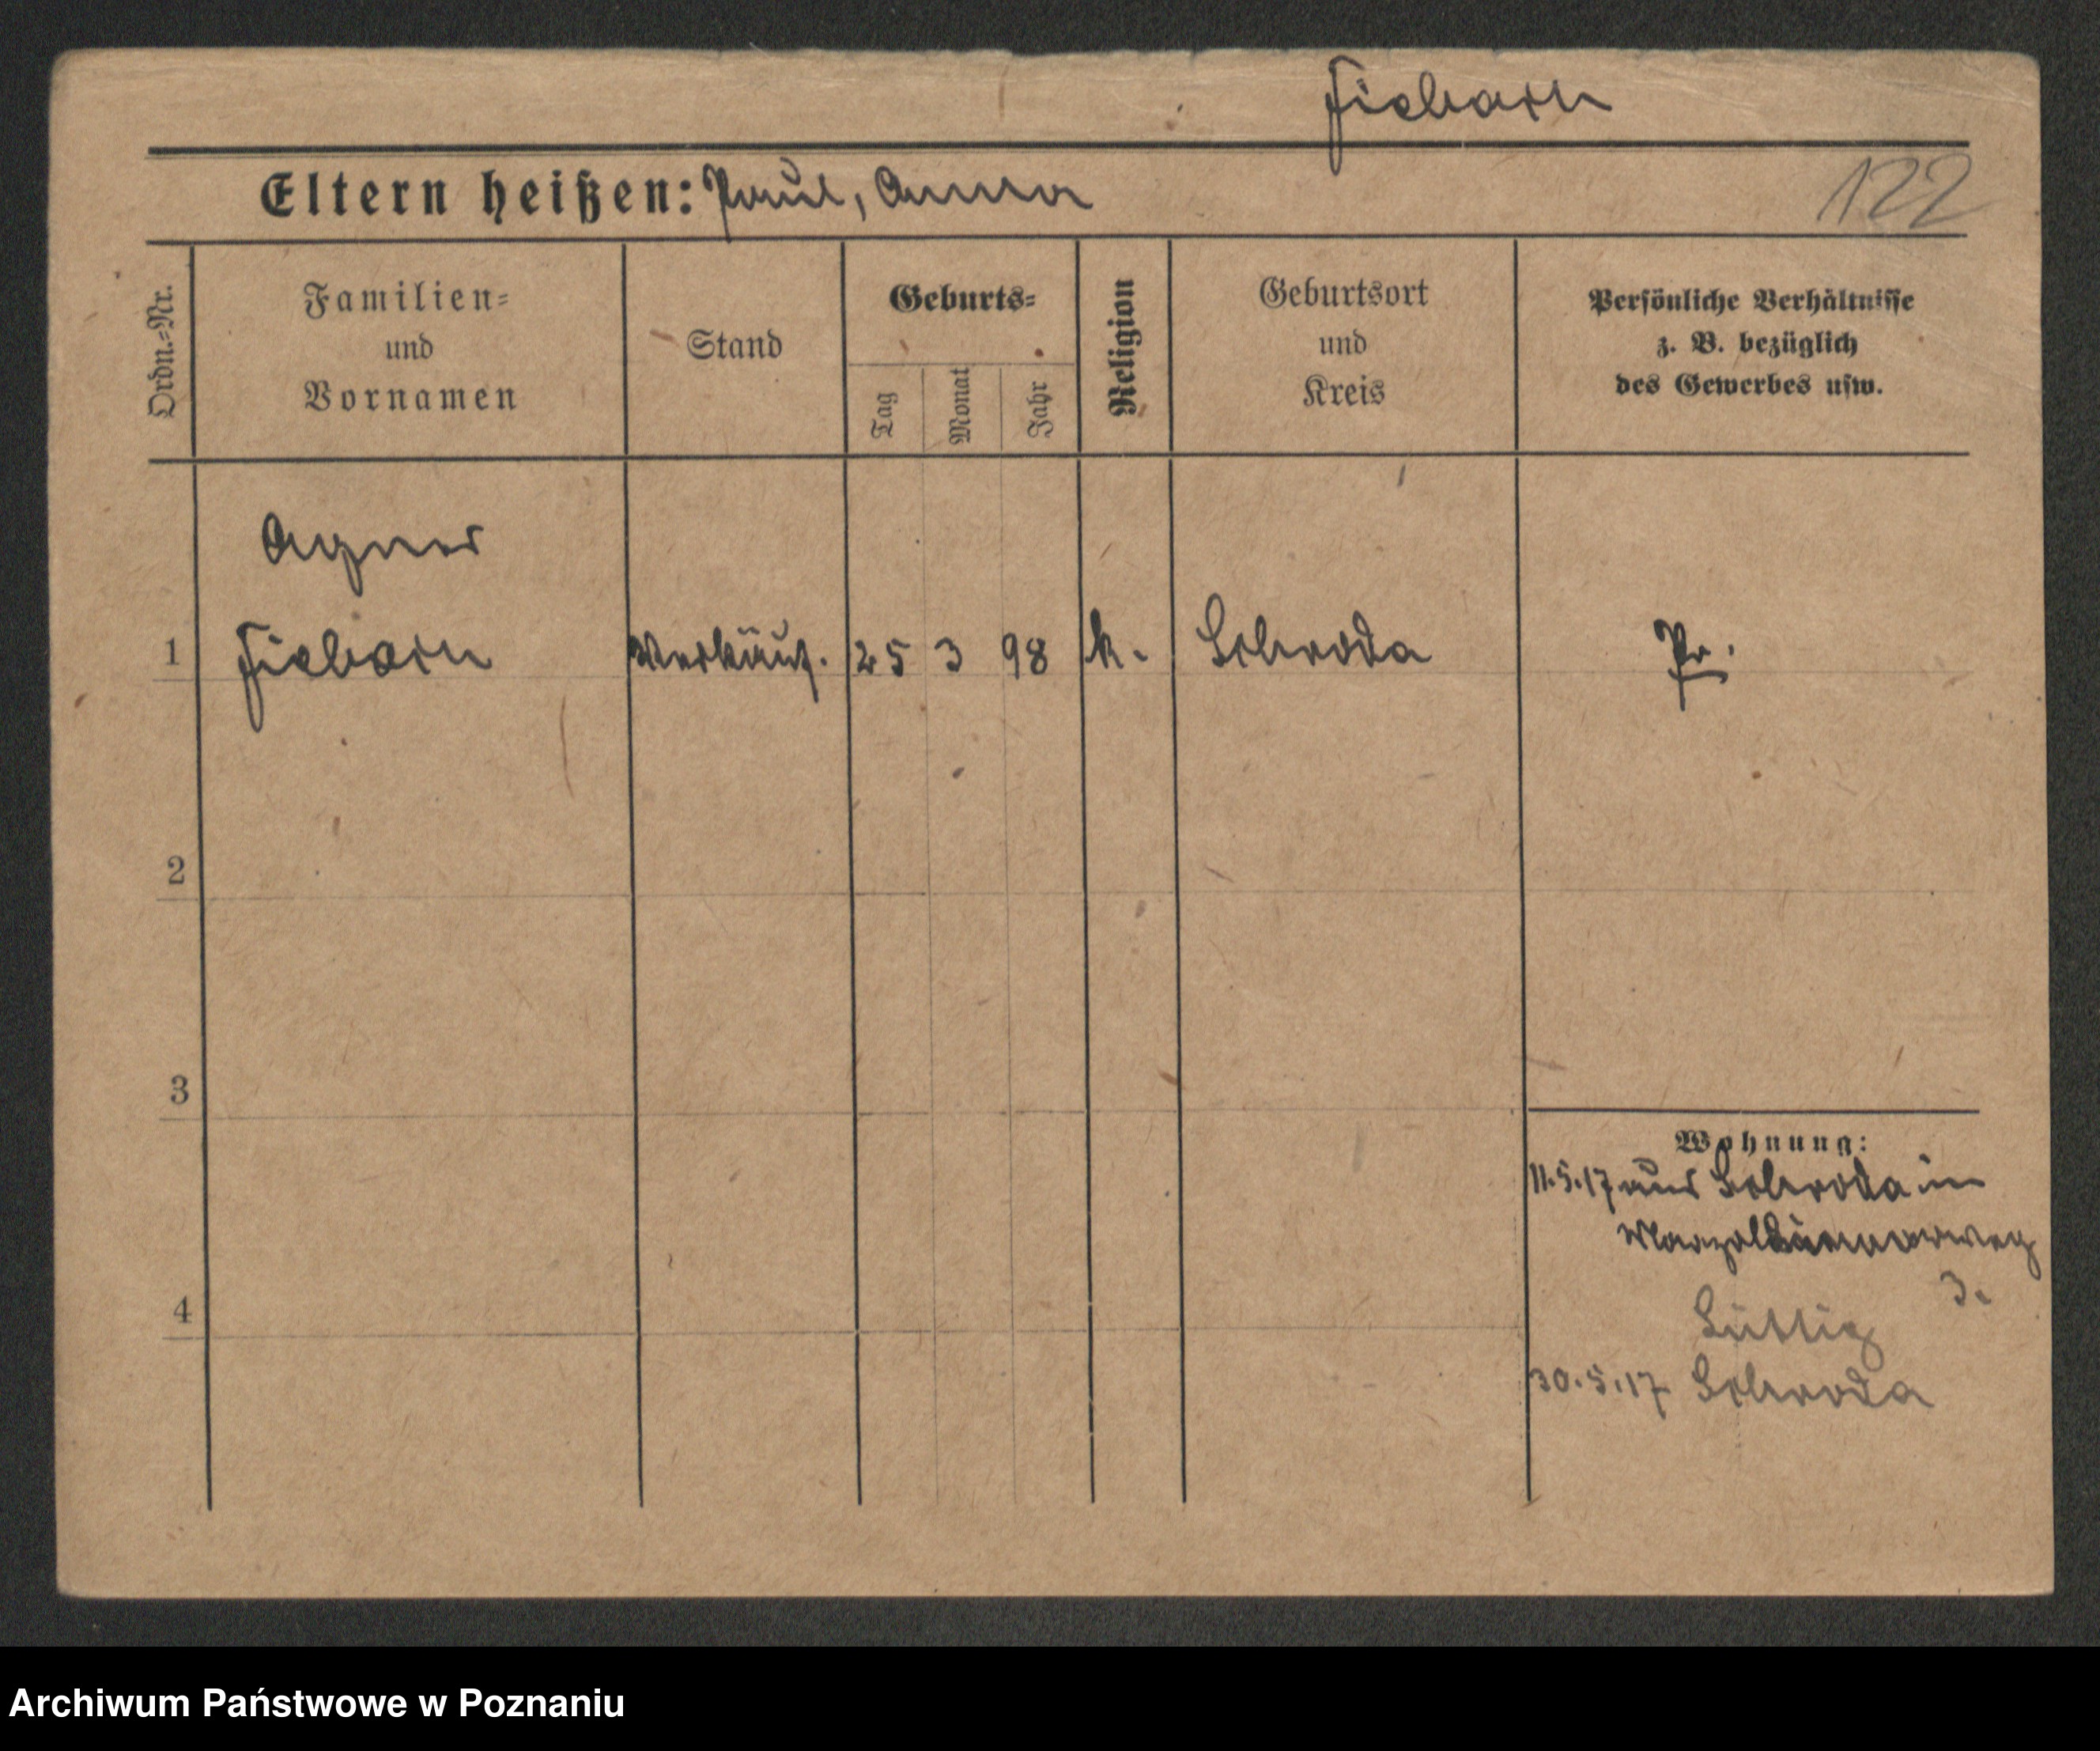 Fiebach
Eltern heißen: Paul, Anna
122
Ordn.-Nr.
Familien-
und
Vornamen
Stand
Geburts-
Tag
Monat
Jahr
Religion
Geburtsort
und
Kreis
Persönliche Verhältnisse
z. B. bezüglich
des Gewerbes usw.
Agnes
1 Verkäuf. 25 3 98 k. Schroda Pr.
2
3
4
Wohnung:
11.5.17 aus Schroda in
3.
Lüttig
30.5.17 Schroda
Archiwum Państwowe w Poznaniu